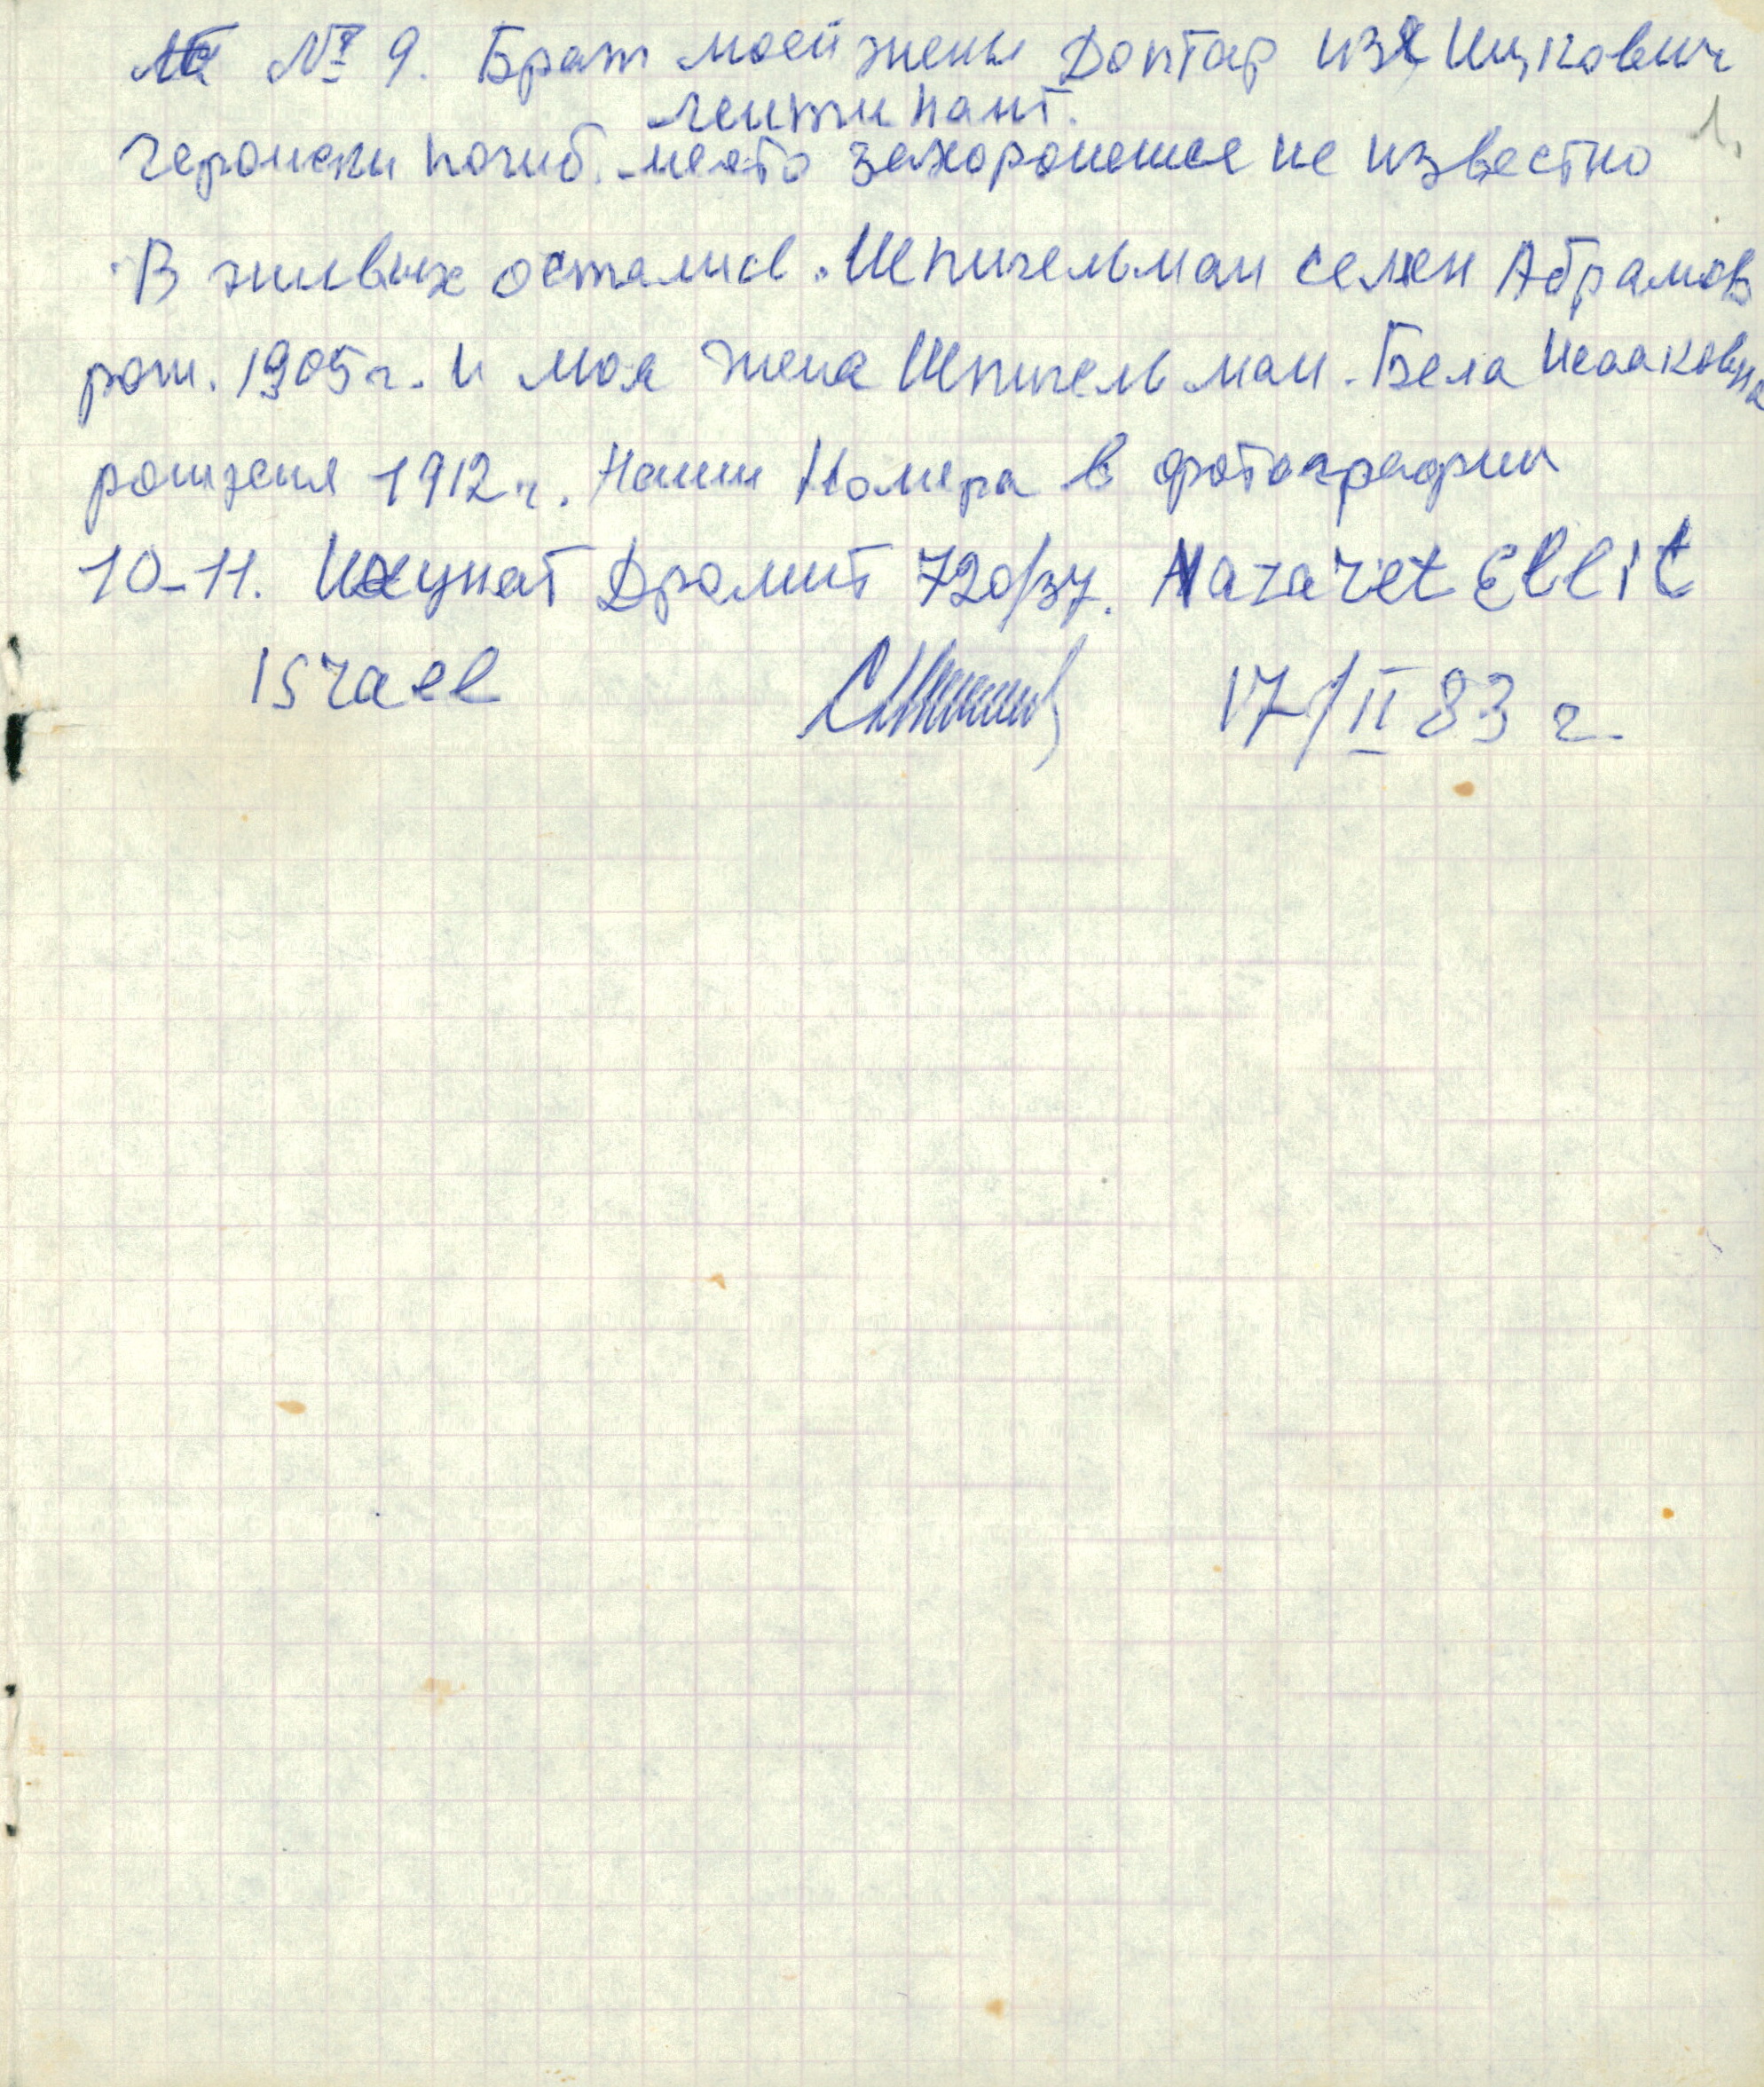 № 9. Брат моей жены Доктар Изя Ицкович
лейтинант.
1.
Геройски погиб. место захоронения не известно
В живых остались. Шпигельман семен Абрамов
рож. 1905 г. и моя жена Шпигельман. Бела Исааковна
рождения 1912 г. Наши Номера в фотографии
10-11. Шхунат Дромит 720/37. Nazaret Ellit
Israel 17/II 83 г.